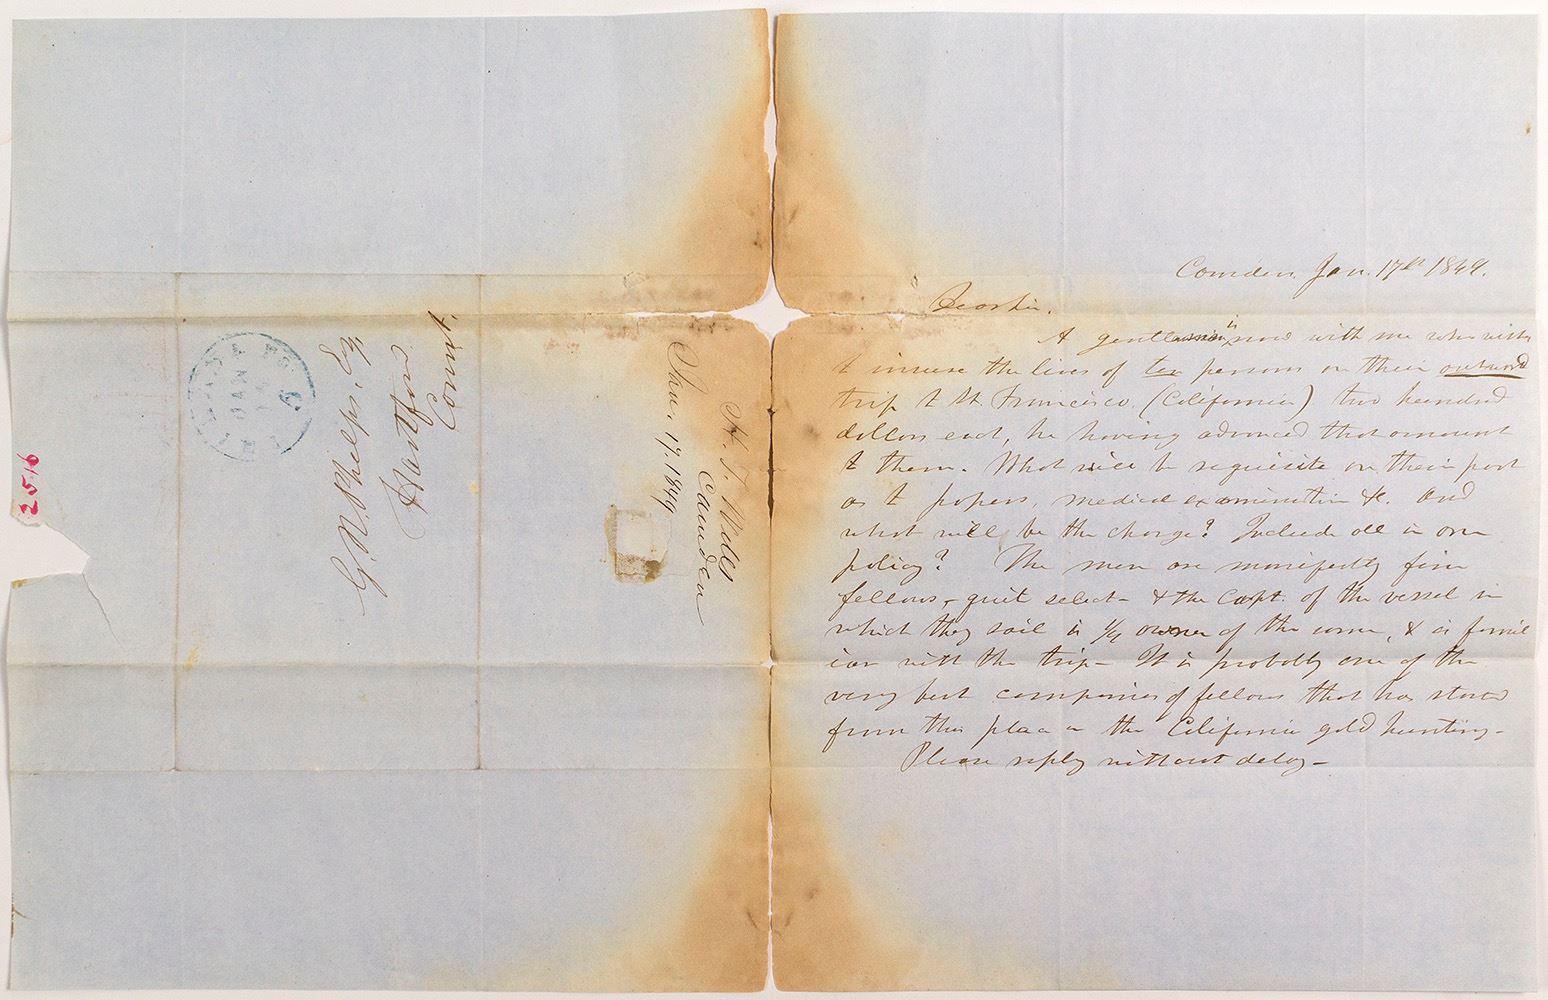 Camden Jan. 17th 1849.
Dear Sir.
A gentleman is now with me who wishes
to insure the lives of ten persons on their outward
trip to St Francisco (California) two hundred
dollars each, he having advanced that amount
to them. What will be requisite on their part
as to papers, medical examination &c. and
what will be the charge? Include all in one
policy? The men are manifestly fine
fellows, quite select - & the Capt. of the vessel in
which they sail is 1/4 owner of the same, & is famil
iar with the trip - It is probably one of the
very best companies of fellows that has started
from this place in the California gold hunting -
Please reply without delay -
H. T. Wells
Camden
Jan. 17. 1849
G. N. Phelps. Esq
Hartford
Connt.
PHILADA
JAN
2516